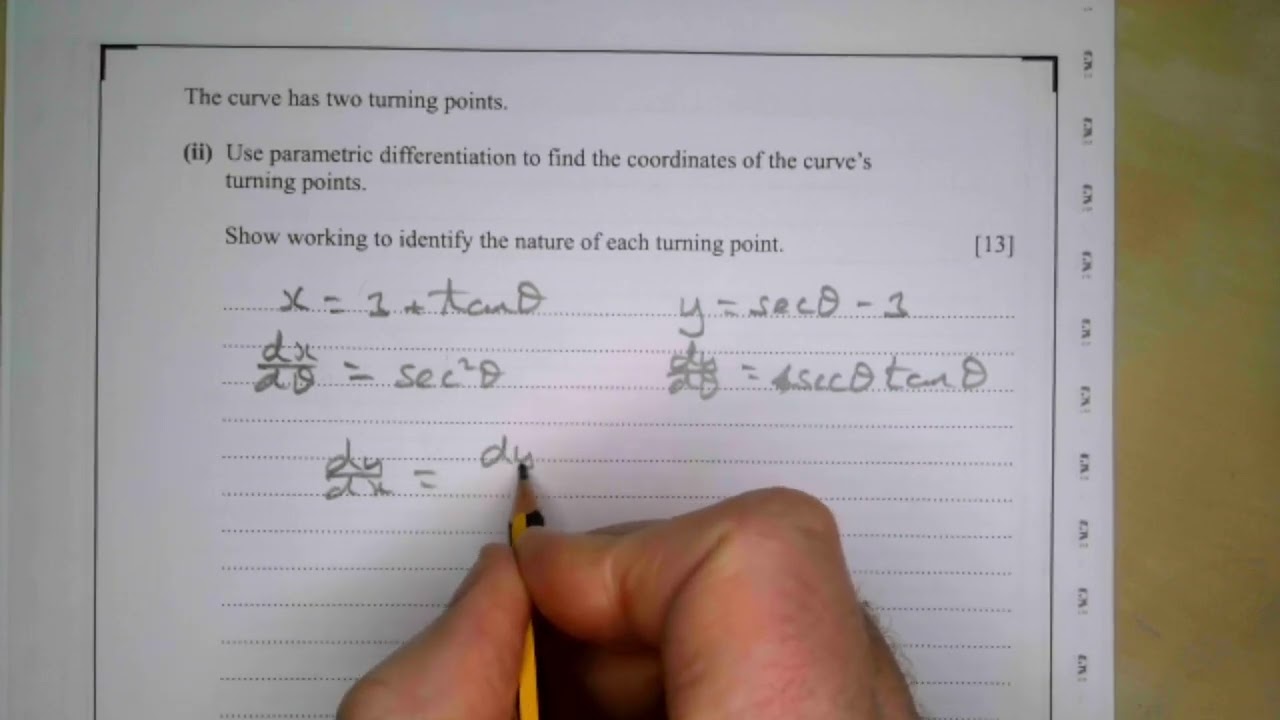 The curve has two turning points.
(ii) Use parametric differentiation to find the coordinates of the curve's
turning points.
Show working to identify the nature of each turning point. [13]
x = 1 + tanθ y = secθ - 1
dx/dθ = sec²θ dy/dθ = secθ tanθ
dy/dx = dy